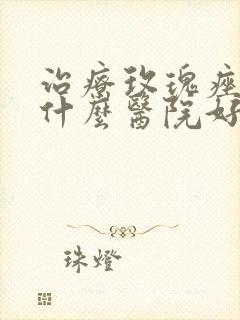 治療玫瑰痤
什麼醫院好
珠燈